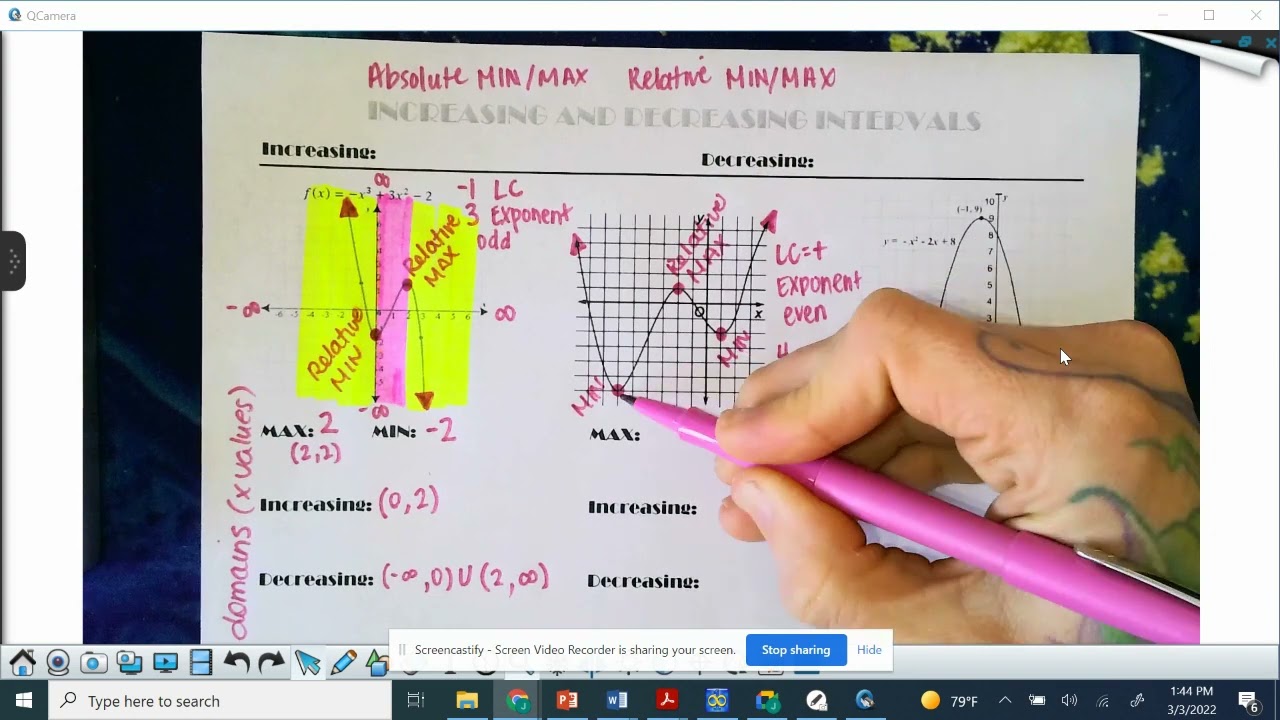 QCamera
Absolute MIN/MAX Relative MIN/MAX
INCREASING AND DECREASING INTERVALS
Increasing:
Decreasing:
f(x) = -x³ + 3x² - 2
∞
-∞
∞
-∞
-1 LC
3 Exponent
odd
Relative
MAX
Relative
MIN
-6 -4 -3 -2 1 2 3 4 5 6
MAX: 2 MIN: -2
(2,2)
Increasing: (0,2)
Decreasing: (-∞,0) U (2,∞)
domains (x values)
Y
Relative
MAX
O
x
MIN
MIN
LC=+
Exponent
even
4
MAX:
Increasing:
Decreasing:
(-1, 9)
y = -x² - 2x + 8
y
10
9
8
7
6
5
4
3
Screencastify - Screen Video Recorder is sharing your screen.
Stop sharing
Hide
Type here to search
79°F
1:44 PM
3/3/2022
6